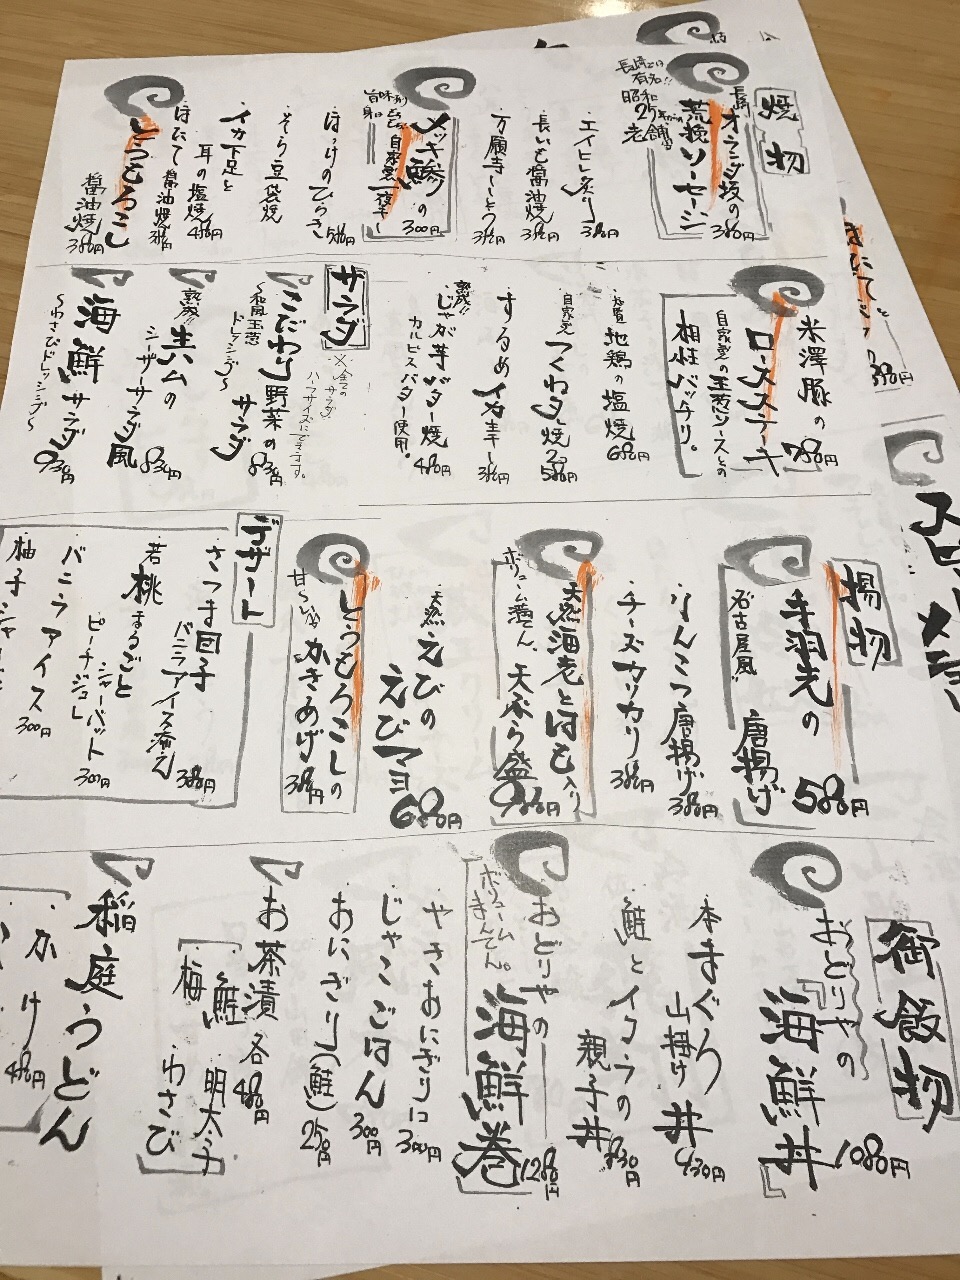 焼物
長崎
オランダ坂の
荒挽ソーセージ
380円
長崎では
有名!!
昭和
25年からの
老舗
・エイヒレ炙り
380円
・長いも醤油焼
380円
・万願寺しとう
380円
メッキ鯵の
自家製一夜干し
300円
・ほっけのひらき
580円
・そら豆袋焼
・イカ下足と
耳の塩焼
480円
・ほたて醤油焼
380円
とうもろこし
醤油焼
380円
米澤豚の
ロースステーキ
780円
自家製の玉葱ソースとの
相性バッチリ。
・地鶏の塩焼
680円
自家製
つくねタレ焼
2コ
580円
・するめイカ干し
380円
熟成!!
じゃが芋バター焼
カルピスバター使用。
480円
サラダ
※全ての
サラダ
ハーフサイズにできます。
こだわり野菜の
サラダ
830円
〜和風玉葱
ドレッシング〜
熟成!!
生ハムの
シーザーサラダ風
830円
海鮮サラダ
930円
〜わさびドレッシング〜
揚物
手羽先の
唐揚げ
580円
名古屋風
・なんこつ唐揚げ
380円
・チーズカリカリ
380円
天然海老とはも入り
天ぷら盛
980円
ボリューム満てん、
・天然えびの
えびマヨ
680円
とうもろこしの
かきあげ
380円
甘〜い
デザート
・さつま団子
バニラアイス添え
380円
・若桃まるごと
シャーベット
ピーチジュレ
300円
・バニラアイス
300円
・柚子シャー
御飯物
おどりやの
海鮮丼
1080円
・本まぐろ
山掛け丼
930円
・鮭とイクラの
親子丼
830円
おどりやの
海鮮巻
1280円
ボリューム
まんてん。
・やきおにぎり2コ
300円
・じゃこごはん
300円
・おにぎり(鮭)
250円
お茶漬
各480円
梅
鮭
明太子
わさび
稲庭うどん
かけ
480円
380円